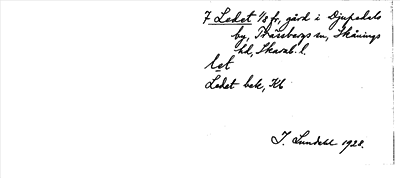 7 Ledet 1/8 fr, gård i Djupedals
by, Trävbergs sn, Skånings
hd, Skarab. l.
let
Ledet bek, Kb
I. Lundahl 1928.